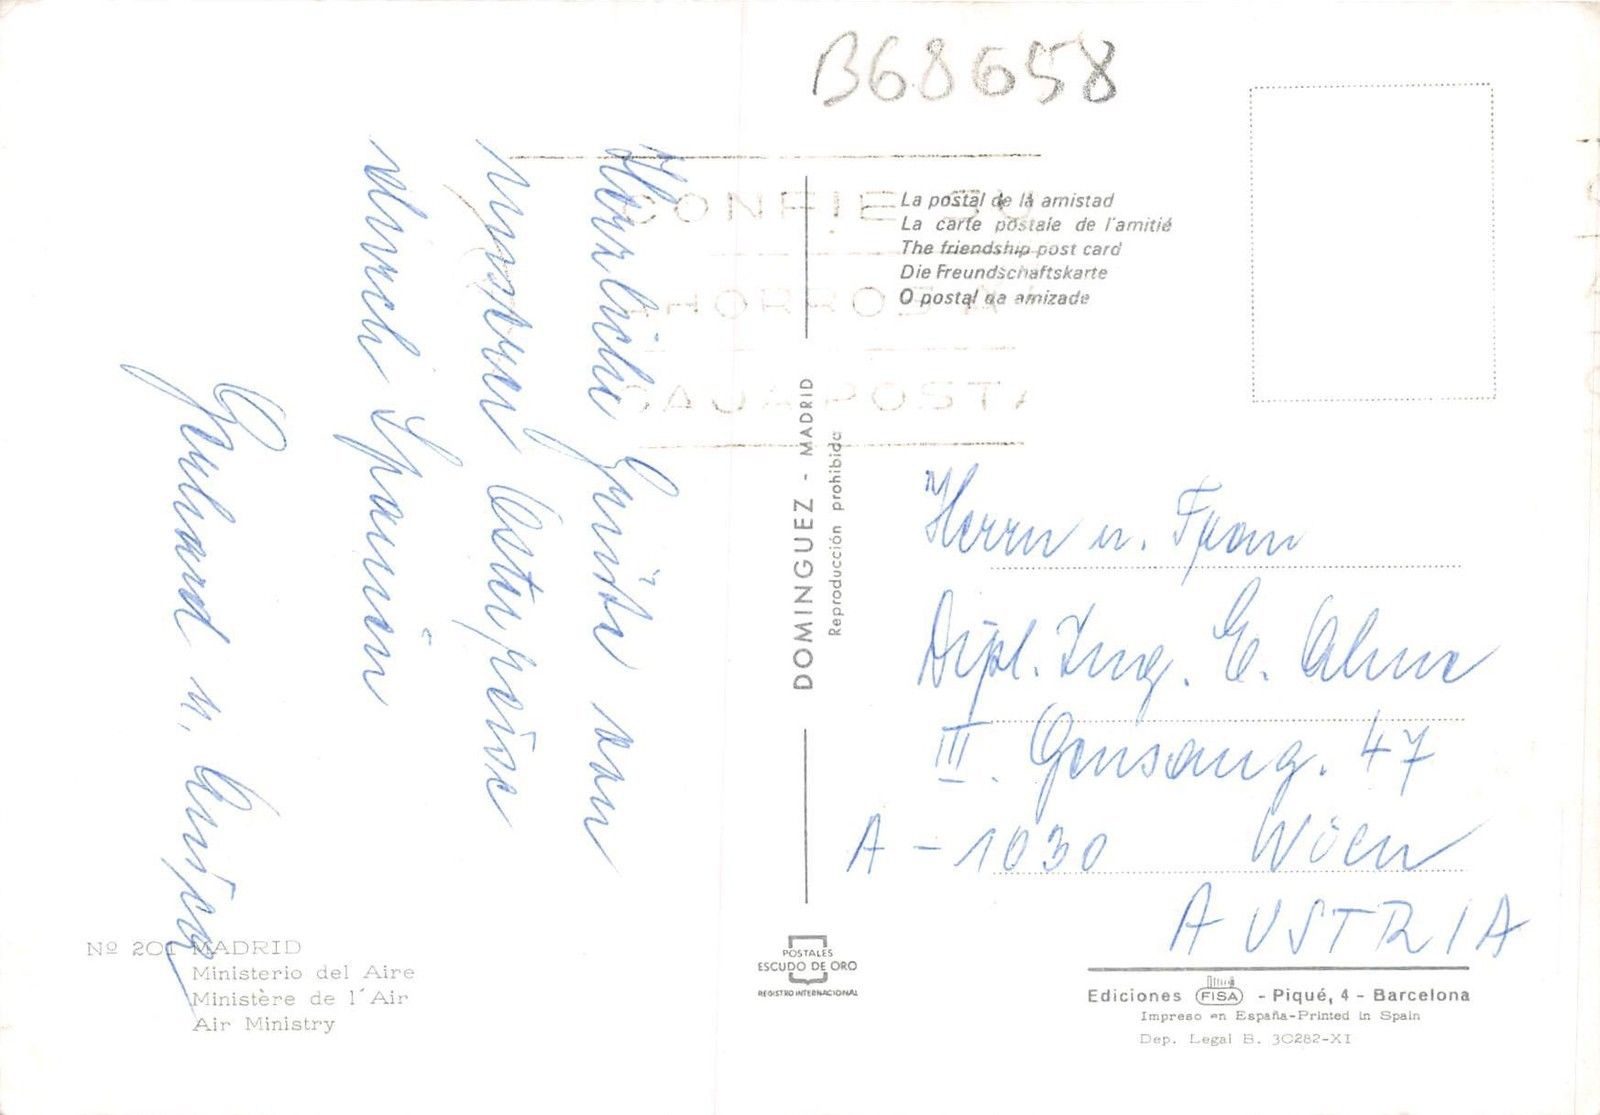 B68658
Herzliche Grüße von
unserer Osterreise
durch Spanien
Gerhard u.
CONFIE SU
AHORROS A
CAJA POSTA
La postal de la amistad
La carte postale de l'amitié
The friendship post card
Die Freundschaftskarte
O postal da amizade
DOMINGUEZ - MADRID
Reproducción prohibida
Herrn u. Frau
Dipl. Ing. E.
III. Gensaug. 47
A - 1030 Wien
AUSTRIA
Nº 201 MADRID
Ministerio del Aire
Ministère de l'Air
Air Ministry
POSTALES
ESCUDO DE ORO
REGISTRO INTERNACIONAL
Ediciones FISA - Piqué, 4 - Barcelona
Impreso en España-Printed in Spain
Dep. Legal B. 30282-XI